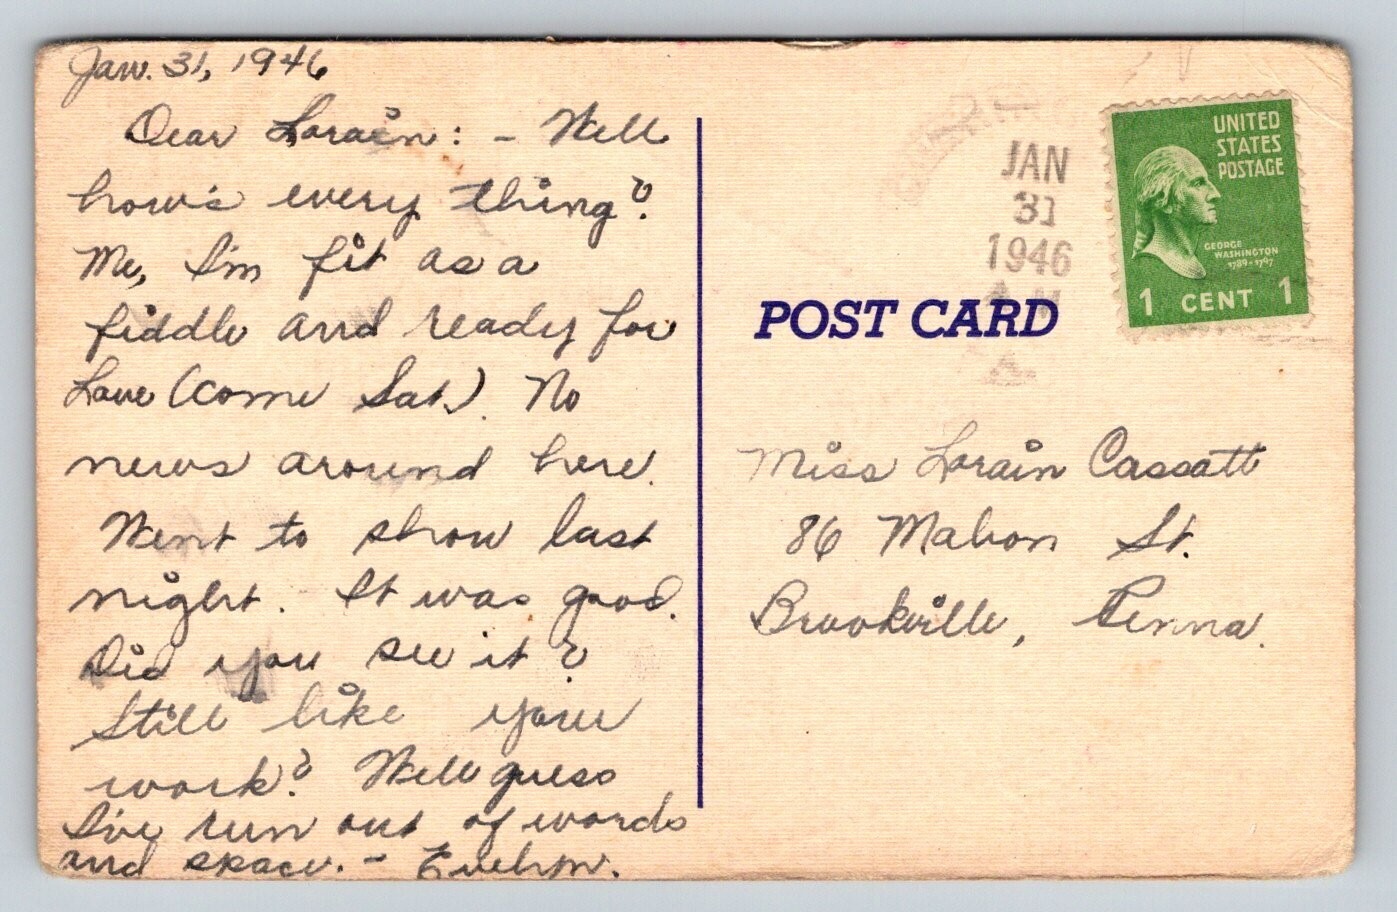 Jan. 31, 1946
Dear Lorain: - Well
how's every thing?
Me, I'm fit as a
fiddle and ready for
Love (come Sat.). No
news around here.
Went to show last
night. It was good.
Did you see it?
Still like your
work? Well guess
I've run out of words
and space. - Evelyn.
JAN
31
1946
UNITED
STATES
POSTAGE
GEORGE
WASHINGTON
1789-1797
1 CENT 1
POST CARD
Miss Lorain Cassatt
86 Mabon St.
Brookville, Penna.